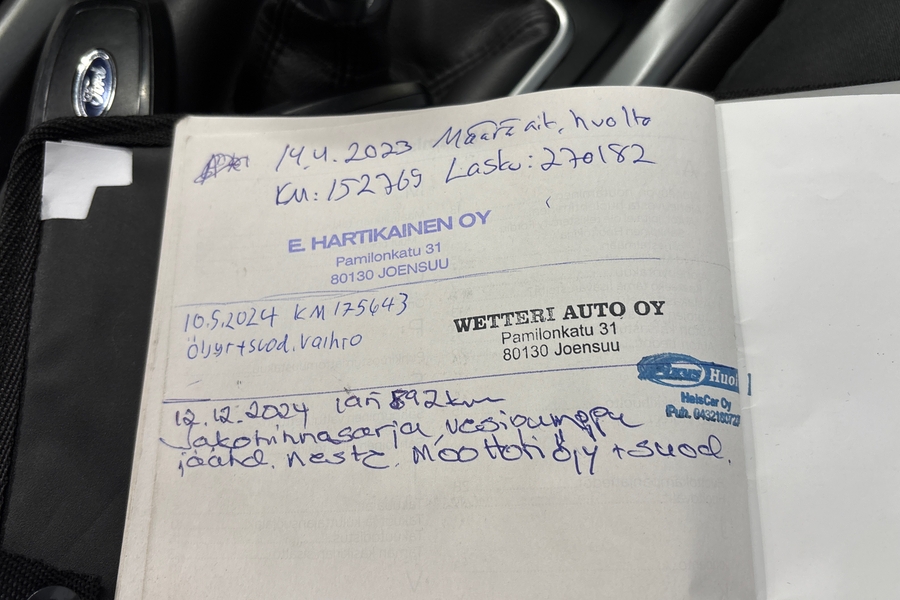 Ford
14.4.2023 Määräait. huolto
KM: 152769 Lasku: 270182
E. HARTIKAINEN OY
Pamilonkatu 31
80130 JOENSUU
10.5.2024 KM 175643
Öljyt+suod. vaihto
WETTERI AUTO OY
Pamilonkatu 31
80130 Joensuu
Huol
HelsCar Oy
Puh.
12.12.2024
Jakohihnasarja, vesipumppu
jäähd. neste. Moottoriöljy + suod.